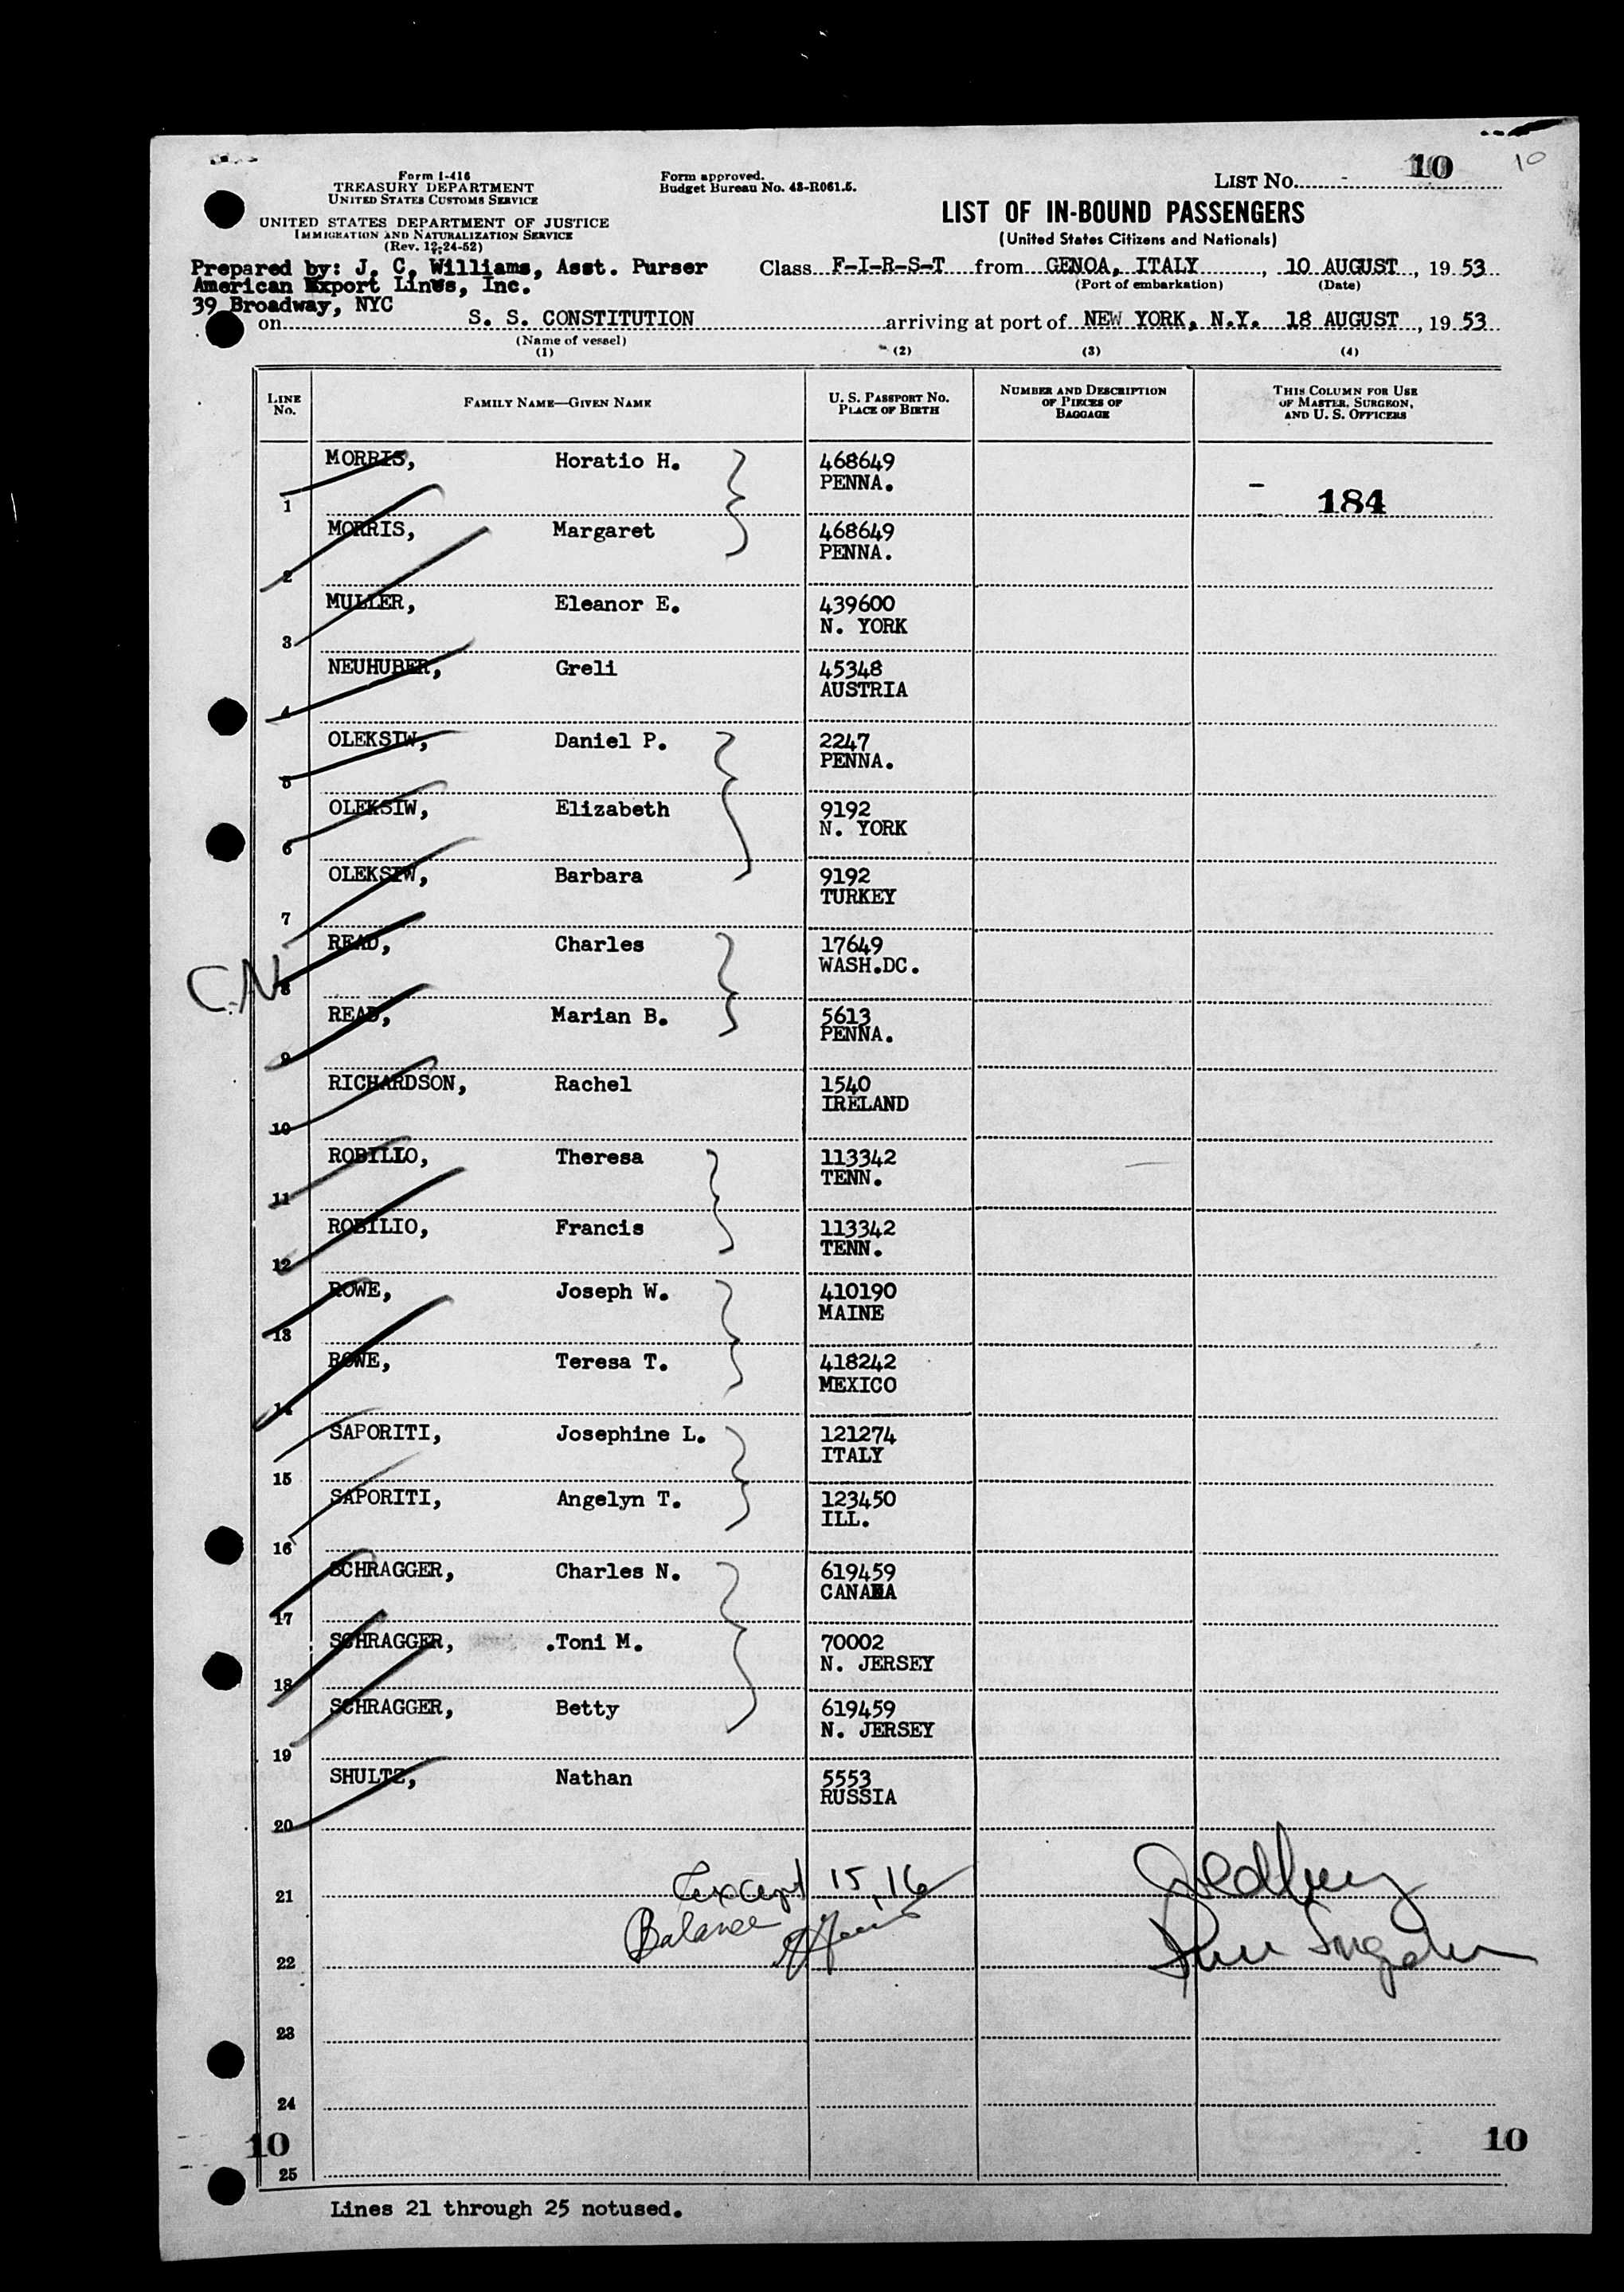 10
Form I-416
TREASURY DEPARTMENT
UNITED STATES CUSTOMS SERVICE
Form approved.
Budget Bureau No. 43-R061.5.
LIST NO. 10
UNITED STATES DEPARTMENT OF JUSTICE
IMMIGRATION AND NATURALIZATION SERVICE
(Rev. 12-24-52)
LIST OF IN-BOUND PASSENGERS
(United States Citizens and Nationals)
Prepared by: J. C. Williams, Asst. Purser
American Export Lines, Inc.
39 Broadway, NYC
Class F-I-R-S-T from GENOA, ITALY, 10 AUGUST, 19 53
(Port of embarkation) (Date)
on S. S. CONSTITUTION arriving at port of NEW YORK, N.Y. 18 AUGUST, 19 53
(Name of vessel)
(1) (2) (3) (4)
LINE NO. FAMILY NAME—GIVEN NAME U. S. PASSPORT NO. PLACE OF BIRTH NUMBER AND DESCRIPTION OF PIECES OF BAGGAGE THIS COLUMN FOR USE OF MASTER, SURGEON, AND U. S. OFFICERS
1 MORRIS, Horatio H. 468649 PENNA. 184
2 MORRIS, Margaret 468649 PENNA.
3 MULLER, Eleanor E. 439600 N. YORK
4 NEUHUBER, Greli 45348 AUSTRIA
5 OLEKSIW, Daniel P. 2247 PENNA.
6 OLEKSIW, Elizabeth 9192 N. YORK
7 OLEKSIW, Barbara 9192 TURKEY
C.N.
8 READ, Charles 17649 WASH.DC.
9 READ, Marian B. 5613 PENNA.
10 RICHARDSON, Rachel 1540 IRELAND
11 ROBILIO, Theresa 113342 TENN.
12 ROBILIO, Francis 113342 TENN.
13 ROWE, Joseph W. 410190 MAINE
14 ROWE, Teresa T. 418242 MEXICO
15 SAPORITI, Josephine L. 121274 ITALY
16 SAPORITI, Angelyn T. 123450 ILL.
17 SCHRAGGER, Charles N. 619459 CANADA
18 SCHRAGGER, .Toni M. 70002 N. JERSEY
19 SCHRAGGER, Betty 619459 N. JERSEY
20 SHULTZ, Nathan 5553 RUSSIA
21 Except 15, 16
22 Balance
23
24
25
10 10
Lines 21 through 25 notused.